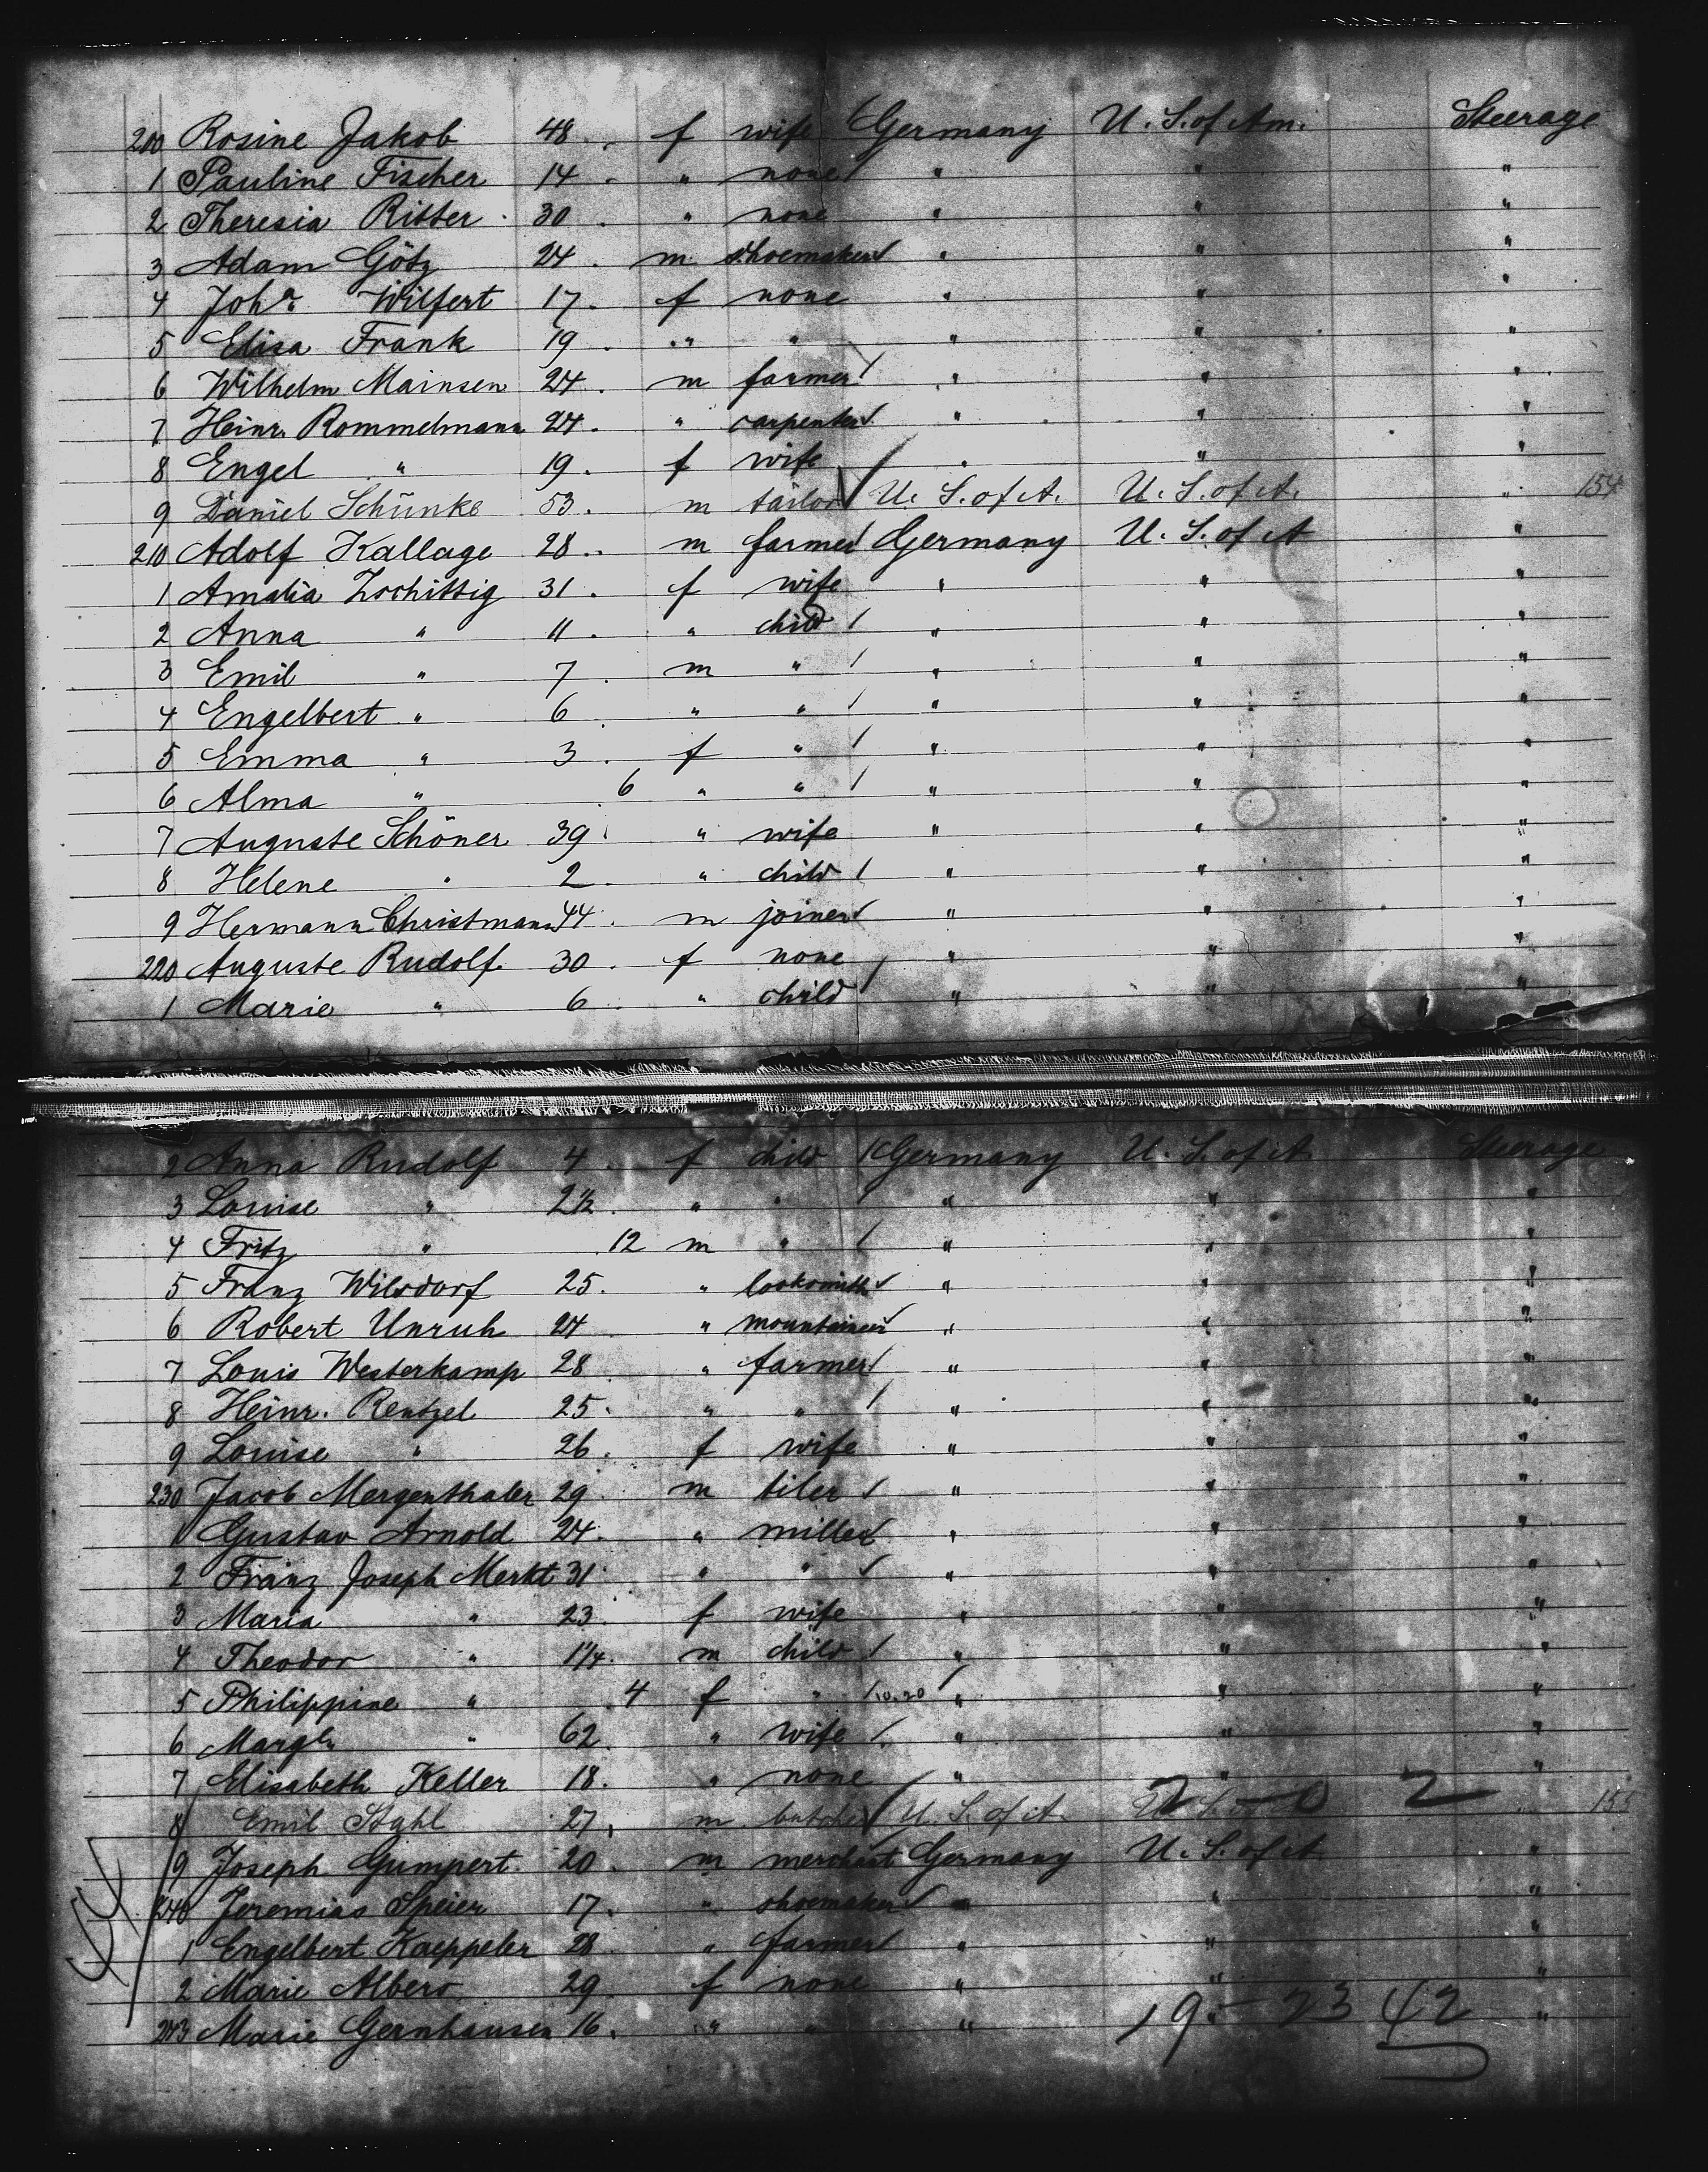 200 Rosine Jakob 48 f wife Germany U. S. of Am. Steerage
1 Pauline Fischer 14 " none " " "
2 Theresia Ritter 30 " none " " "
3 Adam Götz 24 m shoemaker " " "
4 Joha Wilfert 17 f none " " "
5 Elisa Frank 19 " " " " "
6 Wilhelm Mainsen 24 m farmer " " "
7 Heinr. Rommelmann 24 " carpenter " " "
8 Engel " 19 f wife " " "
9 Daniel Schünke 53 m tailor U. S. of A. U. S. of A. " 154
210 Adolf Kallage 28 m farmer Germany U. S. of A "
1 Amalia Zschittig 31 f wife " " "
2 Anna " 11 " child " " "
3 Emil " 7 m " " " "
4 Engelbert " 6 " " " " "
5 Emma " 3 f " " " "
6 Alma " 6 " " " " "
7 Auguste Schöner 39 " wife " " "
8 Helene " 2 " child " " "
9 Hermann Christmann 44 m joiner " " "
220 Auguste Rudolf 30 f none " " "
1 Marie " 6 " child " " "
2 Anna Rudolf 4 f child Germany U. S. of A. Steerage
3 Louise " 2 1/2 " " " " "
4 Fritz " 12 m " " " "
5 Franz Wilsdorf 25 " locksmith " " "
6 Robert Unruh 24 " mountaineer " " "
7 Louis Westerkamp 28 " farmer " " "
8 Heinr. Rentzel 25 " " " " "
9 Louise " 26 f wife " " "
230 Jacob Mergenthaler 29 m tiler " " "
1 Gustav Arnold 24 " miller " " "
2 Franz Joseph Merkt 31 " " " " "
3 Maria " 23 f wife " " "
4 Theodor " 1 1/4 m child " " "
5 Philippine " 4 f " 10.20 " " "
6 Margr. " 62 " wife " " "
7 Elisabeth Keller 18 " none " " "
8 Emil Stahl 27 m butcher U. S. of A. 2 - 0 2 " 155
9 Joseph Gumpert 20 m merchant Germany U. S. of A. "
240 Jeremias Speier 17 " shoemaker " " "
1 Engelbert Kaeppeler 28 " farmer " " "
2 Marie Albers 29 f none " " "
243 Marie Gernhausen 16 " " " 19 - 23 42 "